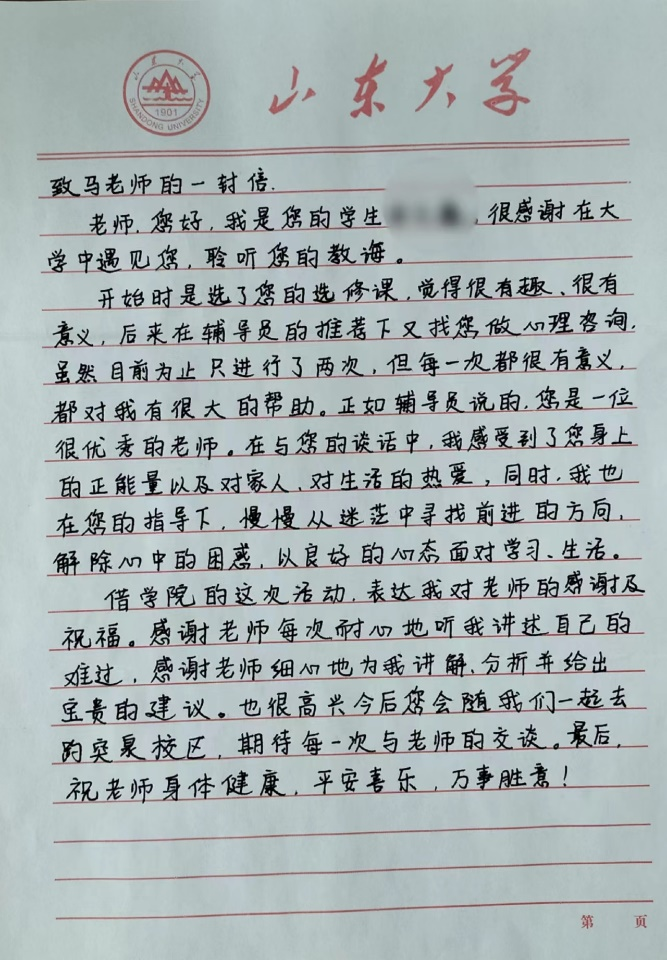 山东大学
山东大学
SHANDONG UNIVERSITY
1901
致马老师的一封信.
老师,您好,我是您的学生 ,很感谢在大
学中遇见您,聆听您的教诲。
开始时是选了您的选修课,觉得很有趣、很有
意义,后来在辅导员的推荐下又找您做心理咨询,
虽然目前为止只进行了两次,但每一次都很有意义,
都对我有很大的帮助。正如辅导员说的,您是一位
很优秀的老师。在与您的谈话中,我感受到了您身上
的正能量以及对家人、对生活的热爱,同时,我也
在您的指导下,慢慢从迷茫中寻找前进的方向,
解除心中的困惑,以良好的心态面对学习、生活。
借学院的这次活动,表达我对老师的感谢及
祝福。感谢老师每次耐心地听我讲述自己的
难过,感谢老师细心地为我讲解、分析并给出
宝贵的建议。也很高兴今后您会随我们一起去
趵突泉校区,期待每一次与老师的交谈。最后,
祝老师身体健康,平安喜乐,万事胜意!
第 页